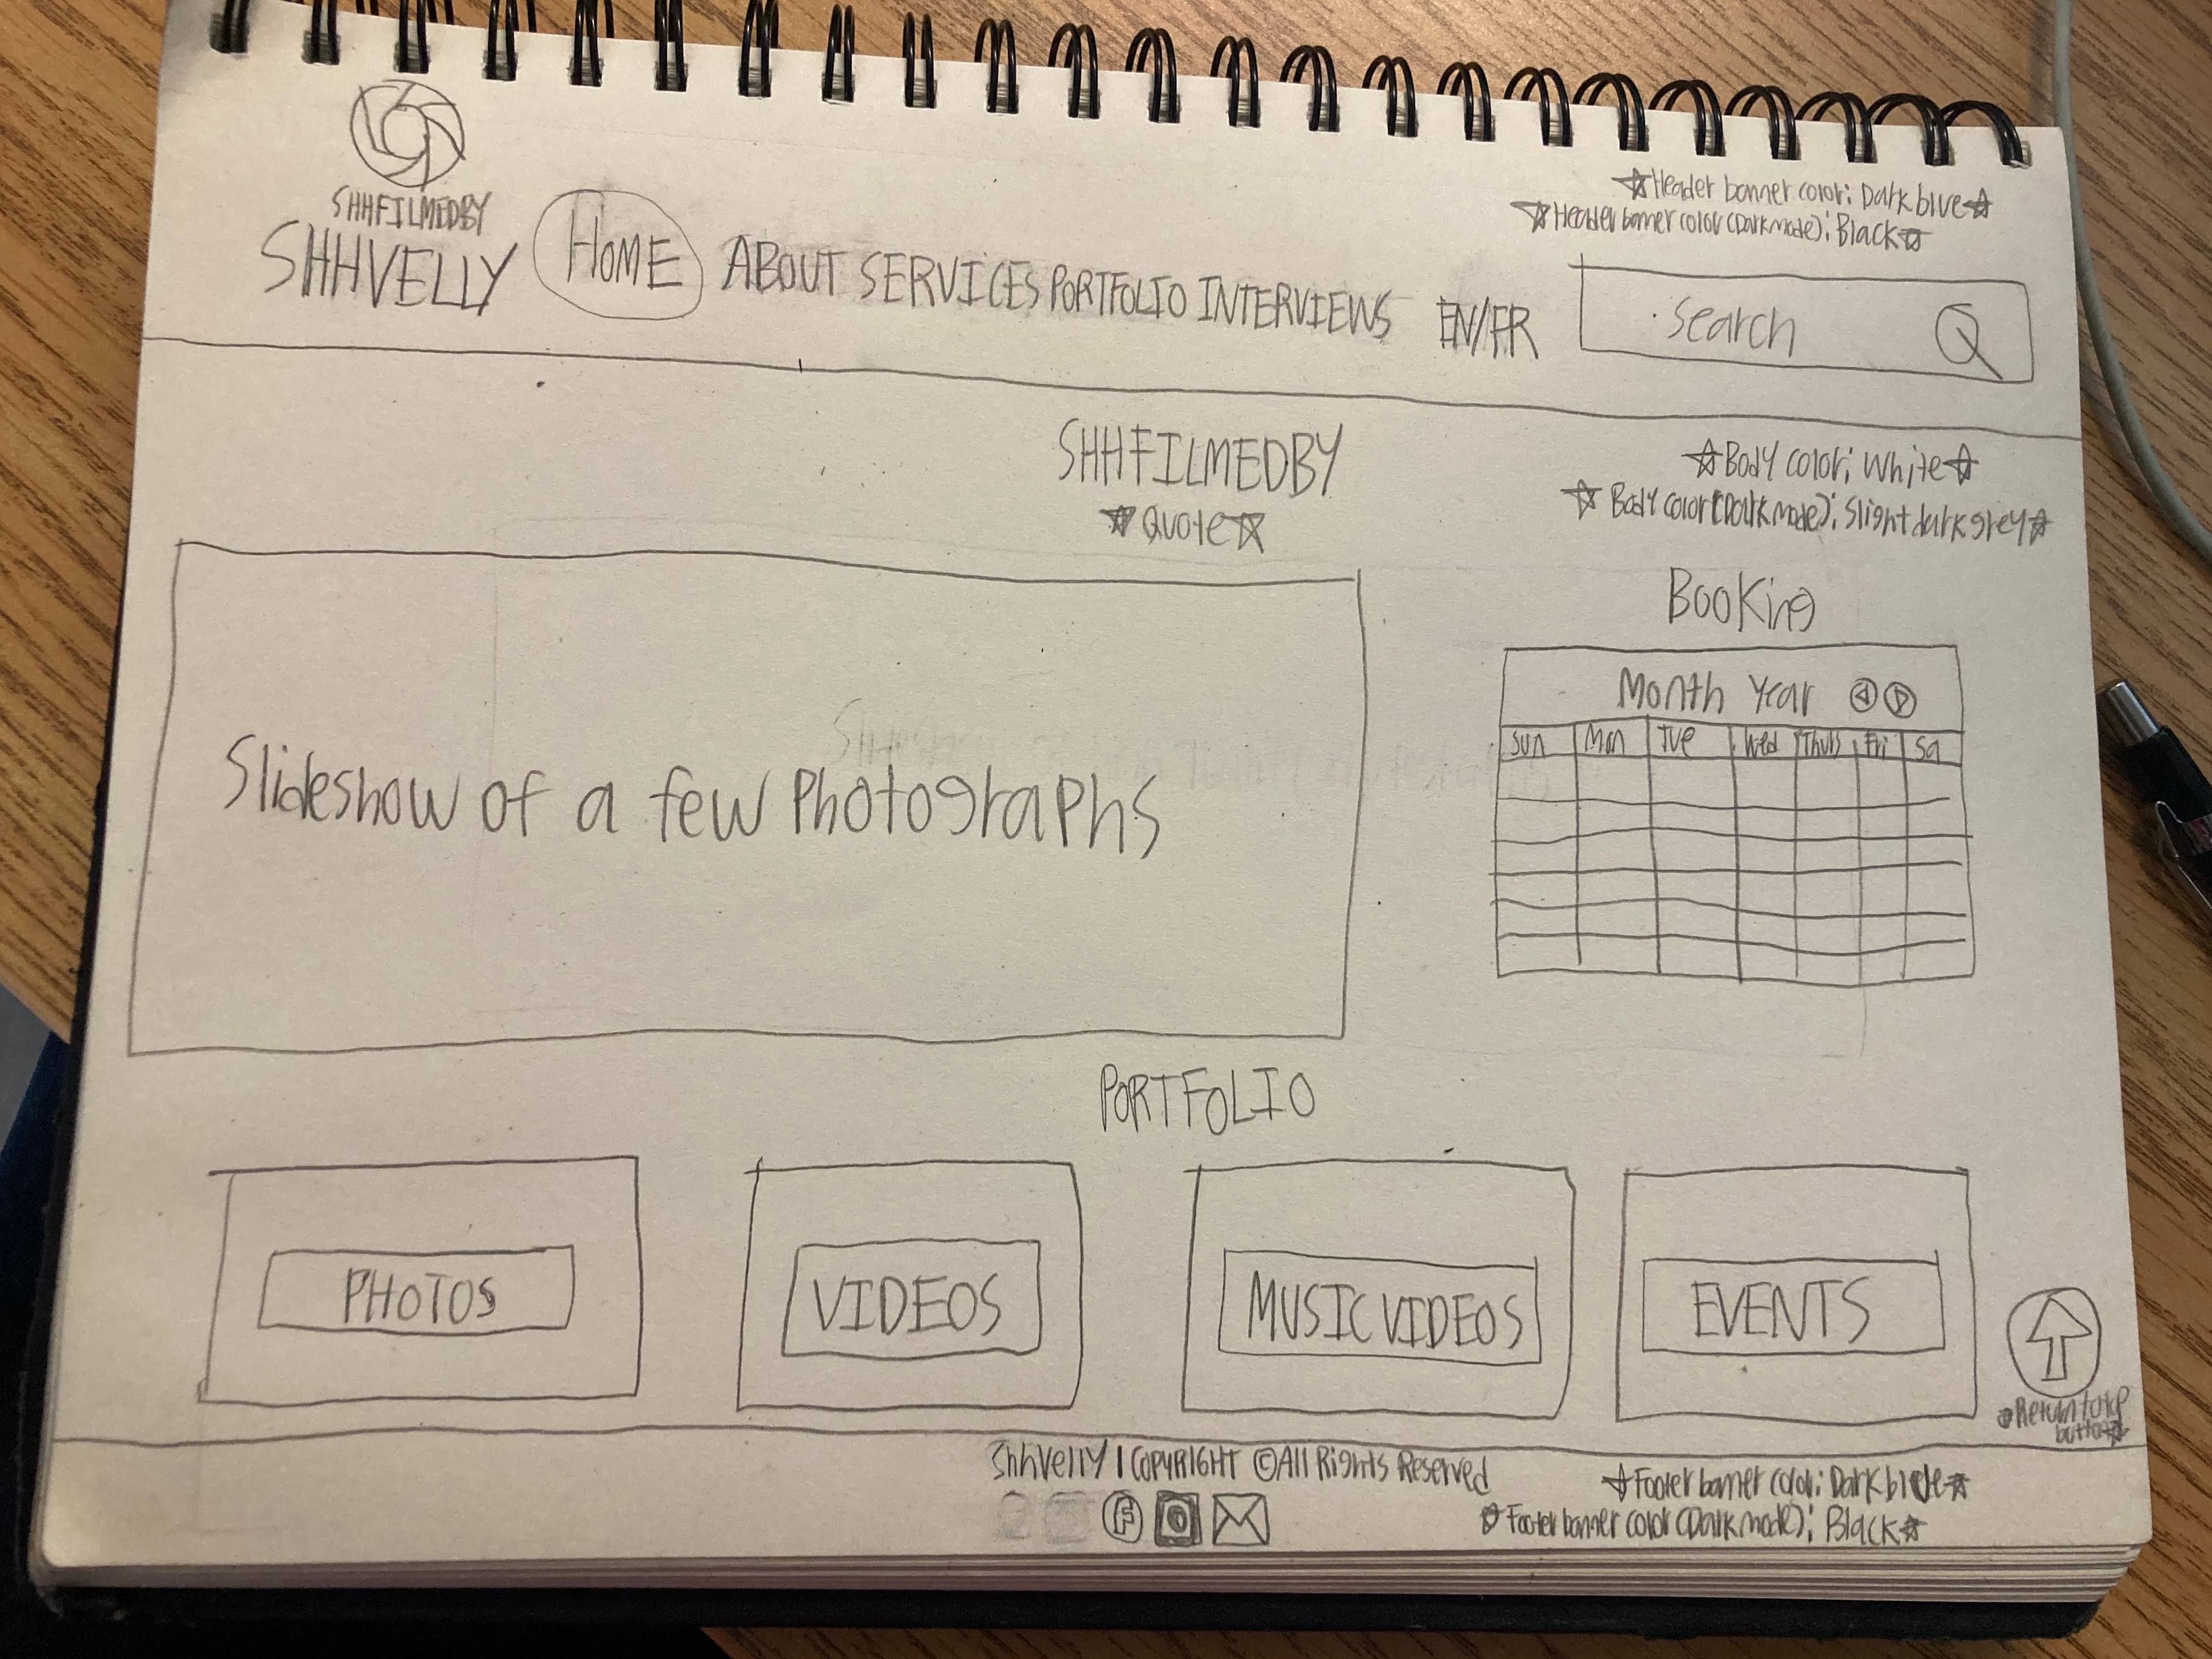 SHHFILMEDBY
SHHVELLY
HOME ABOUT SERVICES PORTFOLIO INTERVIEWS EN/FR
☆Header banner color: Dark blue☆
☆Header banner color (Dark mode): Black☆
Search
SHHFILMEDBY
☆Quote☆
☆Body color: White☆
☆Body color (Dark mode): Slight dark grey☆
Slideshow of a few Photographs
Booking
Month Year
Sun Mon Tue Wed Thurs Fri Sa
PORTFOLIO
PHOTOS VIDEOS MUSIC VIDEOS EVENTS
☆Return to top
button☆
ShhVelly | COPYRIGHT ©All Rights Reserved
F
☆Footer banner color: Dark blue☆
☆Footer banner color (Dark mode): Black☆